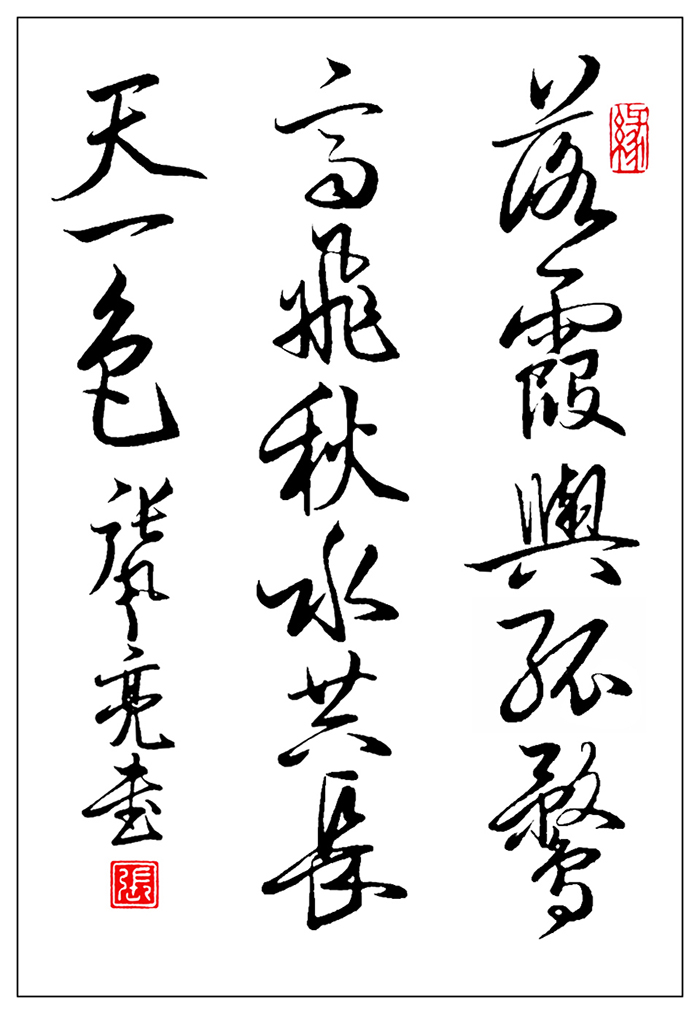 緣
落霞與孤鶩
高飛秋水共長
天一色 張亮書
張